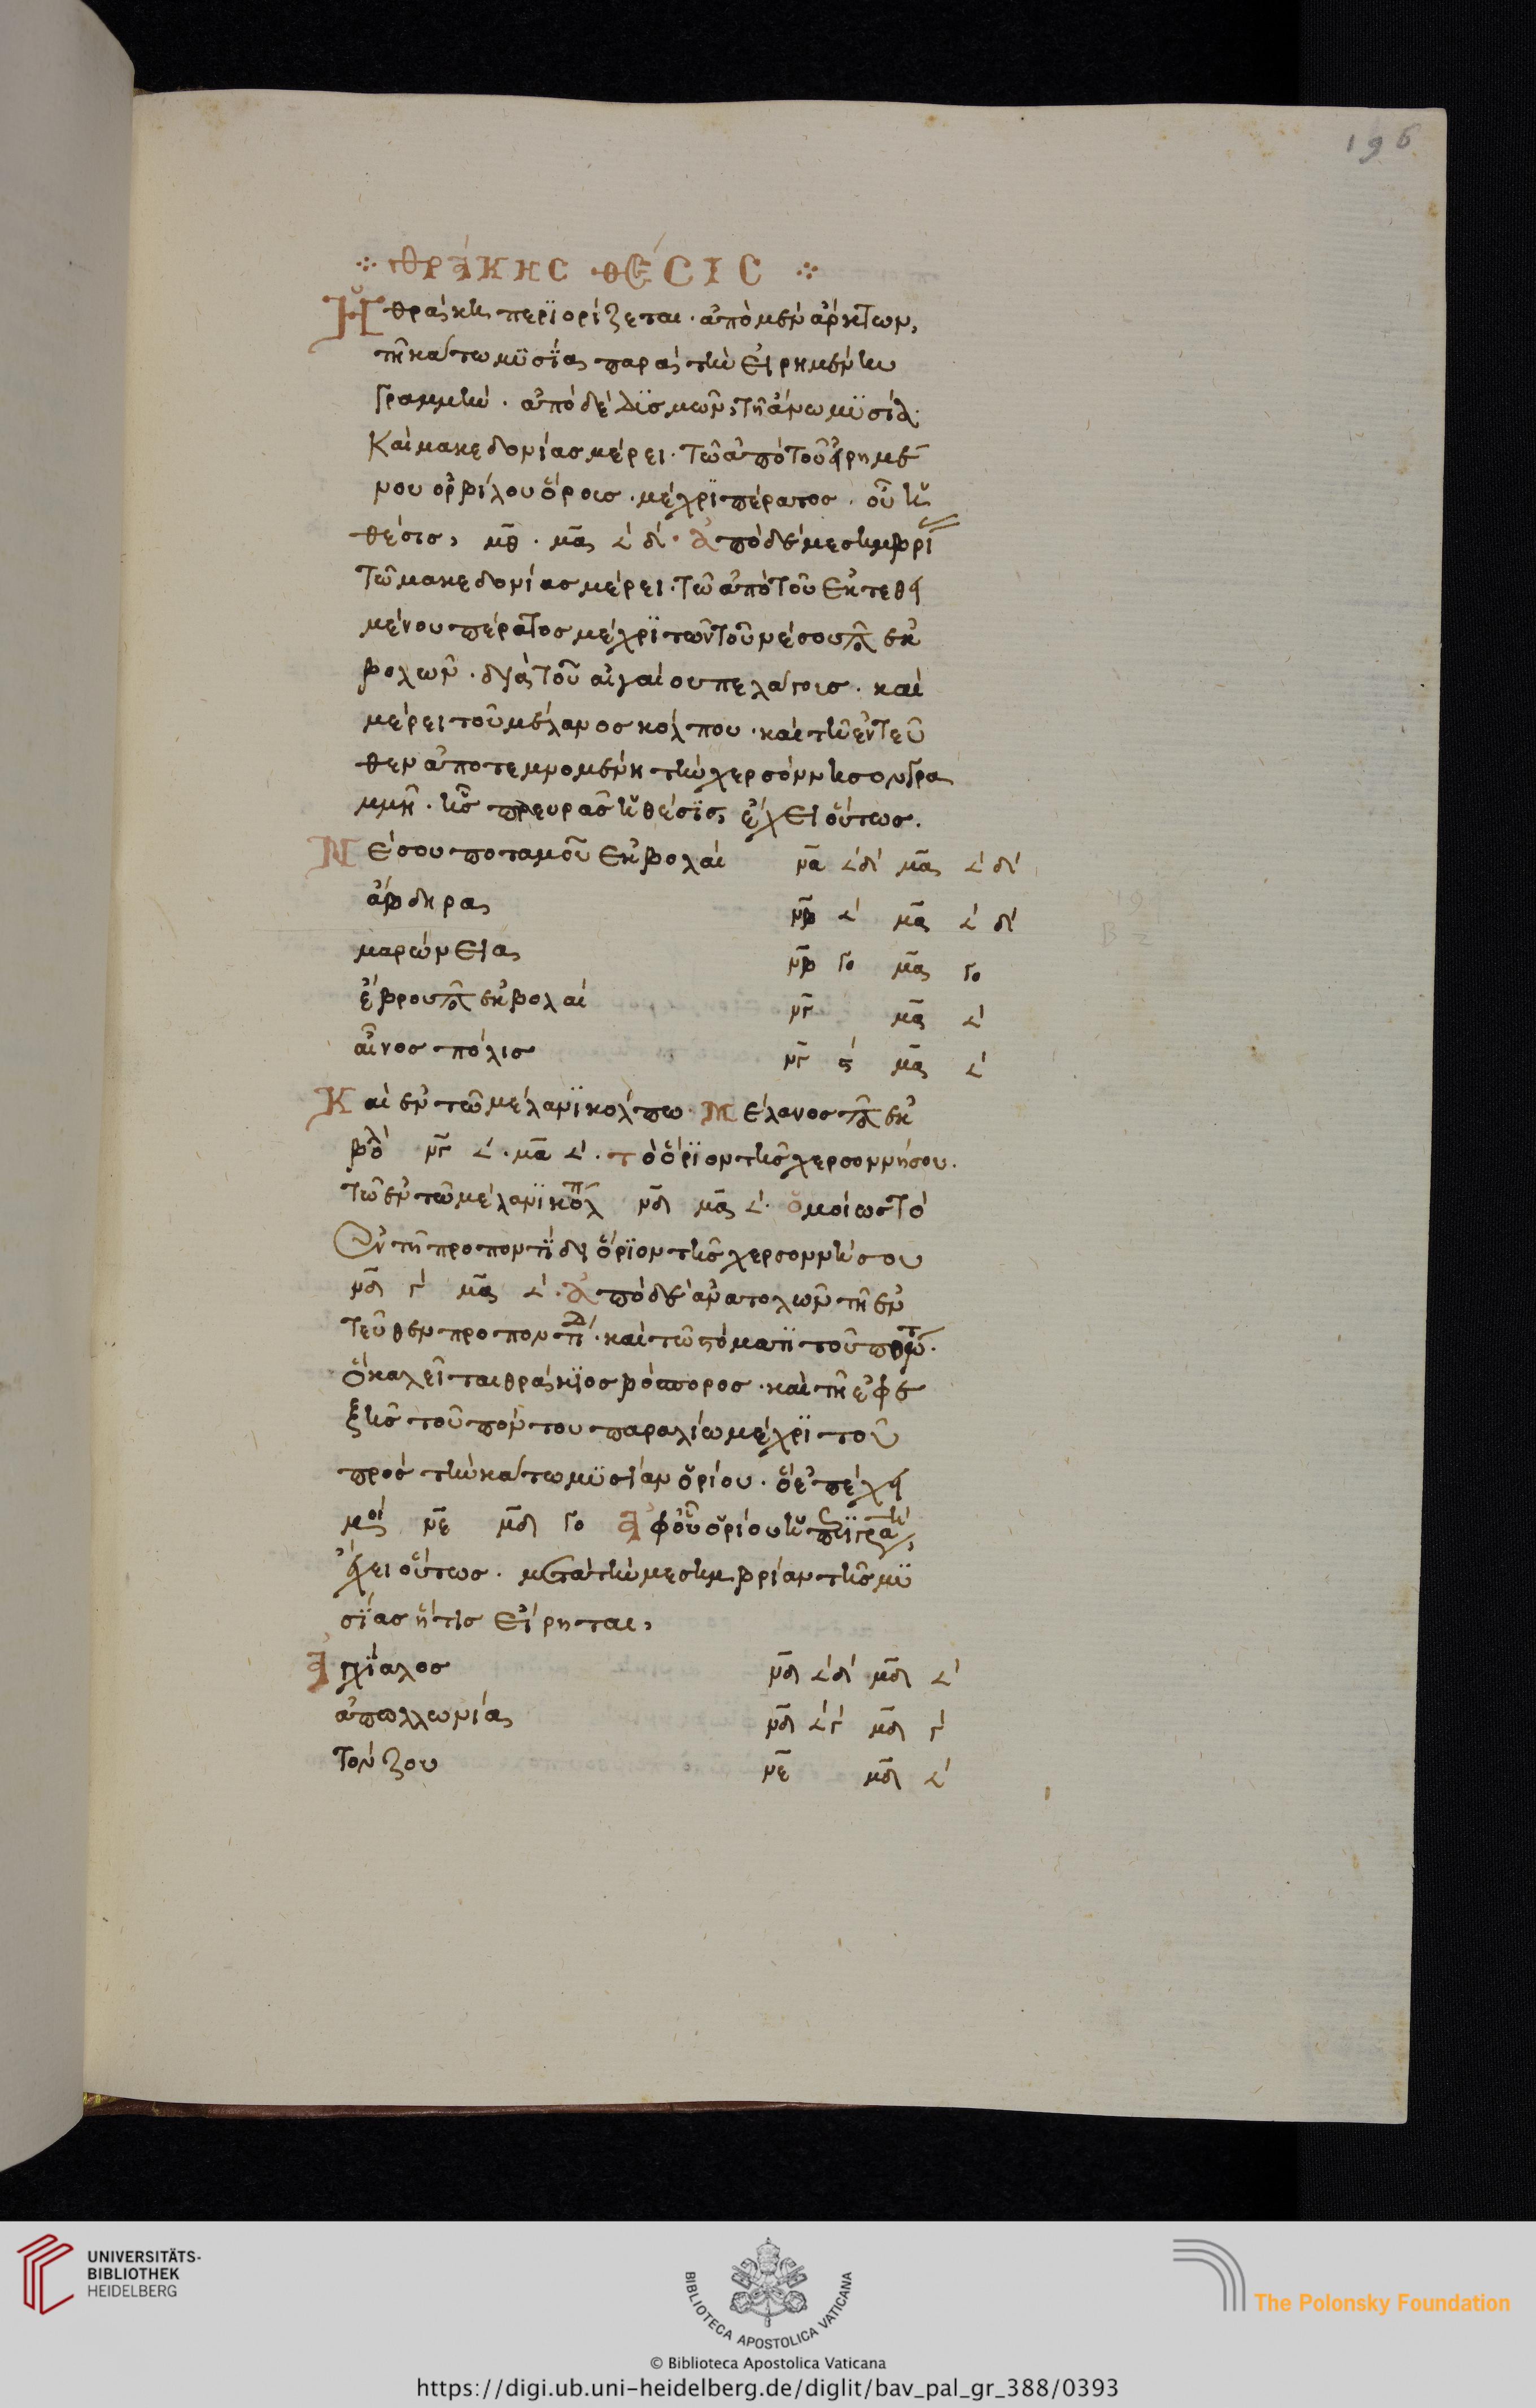 196
θράκης θέσις
Ἡ θράκη περϊορίζεται · ἀπὸ μὲν ἄρκτων,
τῆ κάτω μϋσίας παρὰ τὴν εἰρημένην
γραμμήν · ἀπὸ δὲ δϋσμῶν, τῆ ἄνω μϋσία ·
Καὶ μακεδονίας μέρει · τῶ ἀπὸ τοῦ εἰρημέ
νου ὀρβίλου ὄρους · μέχρϊ πέρατος · οὗ ἡ
θέσις, μθ · μα ∠ʹ δʹ · ἀπὸ δὲ μεσημβρί
τῶ μακεδονίας μέρει · τῶ ἀπὸ τοῦ ἐκτεθει
μένου πέρατος μέχρϊ τῶν τοῦ νέσου ἐκ
βολῶν · διὰ τοῦ αἰγαίου πελάγους · καὶ
μέρει τοῦ μέλανος κόλπου · καὶ τῆ ἐντεῦ
θεν ἀποτεμνομένη τὴν χερσόννησον γρα
μμῆ · ἧς πλευρᾶς ἡ θέσϊς, ἔχει οὕτως ·
Νέσου ποταμοῦ ἐκβολαί να ∠ʹδʹ μα ∠ʹ δʹ
ἄβδηρα νβ ∠ʹ μα ∠ʹ δʹ
μαρώνεια νβ γο μα γο
ἕβρου ἐκβολαί νγ μα ∠ʹ
αἶνος πόλις νγ ϛʹ μα ∠ʹ
Καὶ ἐν τῶ μέλανϊ κόλπω · μέλανος ἐκ
βολ νγ ∠ʹ · μα ∠ʹ · τὸ ὅρϊον τῆς χερσοννήσου ·
τῶ ἐν τῶ μέλανϊ κολπ νδ μα ∠ʹ · ὁμοίως τὸ
ἐν τῆ προποντίδι ὅρϊον τῆς χερσοννήσου
νδ γʹ μα ∠ʹ · ἀπὸ δὲ ἀνατολῶν τῆ ἐν
τεῦθεν προποντιδ · καὶ τῶ στόματϊ τοῦ
ὃ καλεῖται θράκϊος βόσπορος · καὶ τῆ ἐφε
ξῆς τοῦ πόντου παραλίω μέχρϊ τοῦ
πρὸς τὴν κάτω μϋσίαν ὁρίου · ὃ ἐπέχει
μοί νε μδ γο ἀφ οὗ ὁρίου ἡ πεϊγρα
ἔχει οὕτως · μετὰ τὴν μεσημβρίαν τῆς μϋ
σϊας ἥτις εἴρηται,
Ἀγχϊαλος νδ ∠ʹδʹ μδ ∠ʹ
ἀπολλωνία νδ ∠ʹγʹ μδ γʹ
τόνζου νε μδ ∠ʹ
UNIVERSITÄTS-
BIBLIOTHEK
HEIDELBERG
BIBLIOTECA APOSTOLICA VATICANA
The Polonsky Foundation
© Biblioteca Apostolica Vaticana
https://digi.ub.uni-heidelberg.de/diglit/bav_pal_gr_388/0393